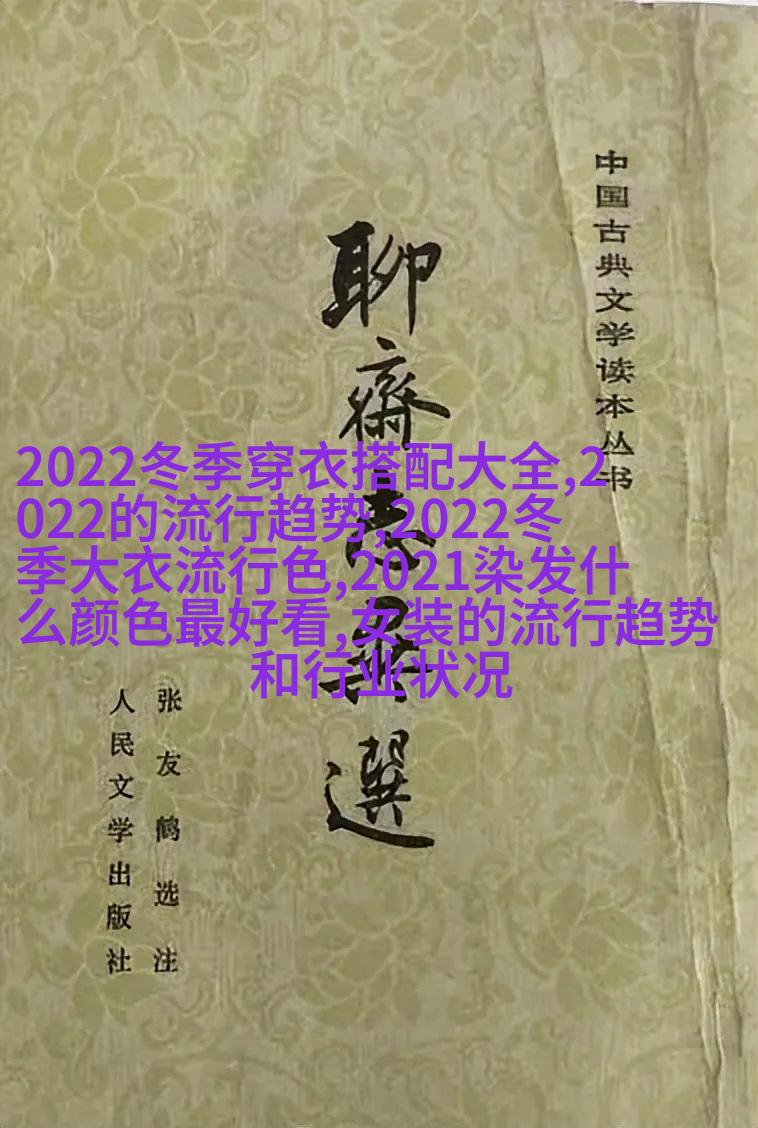 中国古典文学读本丛书
聊齋志異選
张友鹤选注
人民文学出版社
2022冬季穿衣搭配大全,2
022的流行趋势,2022冬
季大衣流行色,2021染发什
么颜色最好看,女装的流行趋势
和行业状况